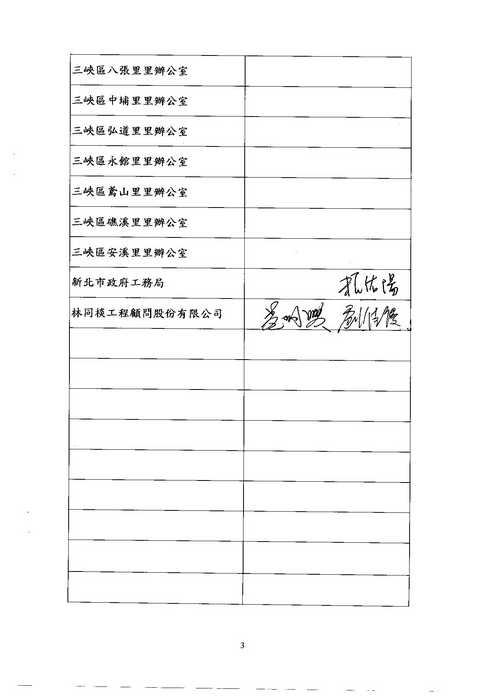 三峽區八張里里辦公室
三峽區中埔里里辦公室
三峽區弘道里里辦公室
三峽區永館里里辦公室
三峽區鳶山里里辦公室
三峽區礁溪里里辦公室
三峽區安溪里里辦公室
新北市政府工務局
林同棪工程顧問股份有限公司
3